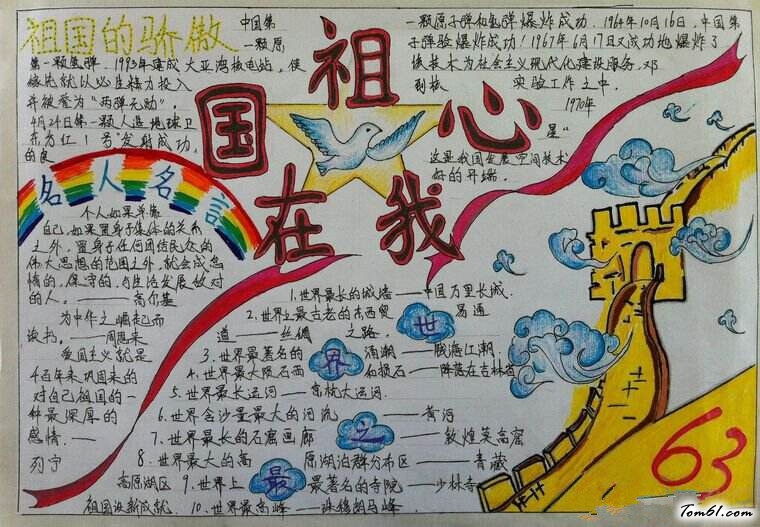 祖国的骄傲
中国第
一颗原
一颗原子弹和氢弹爆炸成功、1964年10月16日,中国第
子弹验爆炸成功!1967年6月17日又成功地爆炸了
第一颗氢弹.1993年建成大亚湾核电站,使
核技术为社会主义现代化建设服务.邓
稼先就以必生精力投入
到核
实验工作之中.
并被誉为“两弹元勋”.
1970年
4月24日第一颗人造地球卫
星“
东方红1号”发射成功,
这是我国发展空间技术
的良
好的开端.
祖
国
心
在
我
名人名言
个人如果单靠
自己,如果置身于集体的关系
之外,置身于任何团结民众的
伟大思想的范围之外,就会成怠
惰的,保守的,与生活发展敌对
的人.——高尔基
为中华之崛起而
读书.——周恩来
爱国主义就是
千百年来巩固来的
对自己祖国的一
种最深厚的
感情.——
列宁
世界之最
1.世界最长的城墙——中国万里长城.
2.世界上最古老的东西贸易通
道——丝绸之路
3.世界最著名的涌潮——钱塘江潮
4.世界最大陨石雨和陨石——降落在吉林省
5.世界最长运河——京杭大运河.
6.世界含沙量最大的河流——黄河
7.世界最长的石窟画廊——敦煌莫高窟
8.世界最大的高原湖泊群分布区——青藏
高原湖区
9.世界上最著名的寺院——少林寺
祖国没新成就.
10.世界最高峰——珠穆朗玛峰
63
Tom61.com